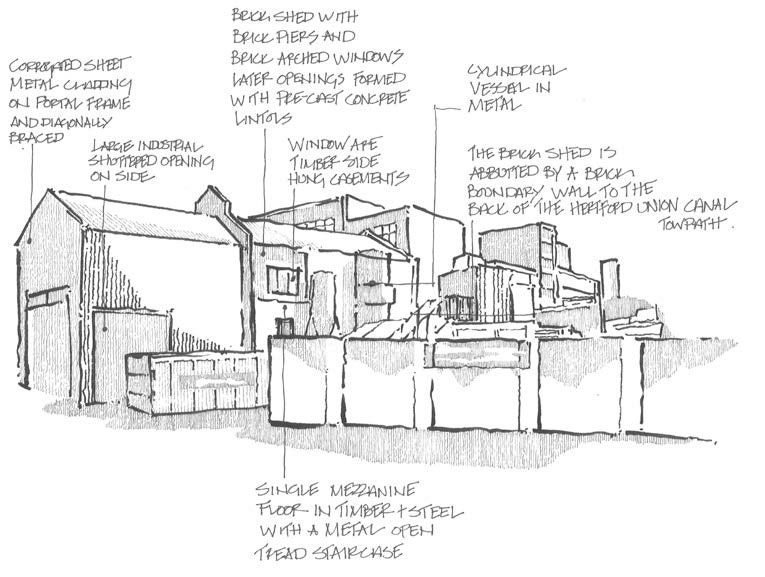 CORRUGATED SHEET
METAL CLADDING
ON PORTAL FRAME
AND DIAGONALLY
BRACED
LARGE INDUSTRIAL
SHUTTERED OPENING
ON SIDE
BRICK SHED WITH
BRICK PIERS AND
BRICK ARCHED WINDOWS
LATER OPENINGS FORMED
WITH PRE-CAST CONCRETE
LINTOLS
WINDOW ARE
TIMBER SIDE
HUNG CASEMENTS
CYLINDRICAL
VESSEL IN
METAL
THE BRICK SHED IS
ABBUTTED BY A BRICK
BOUNDARY WALL TO THE
BACK OF THE HERTFORD UNION CANAL
TOWPATH.
SINGLE MEZZANINE
FLOOR IN TIMBER + STEEL
WITH A METAL OPEN
TREAD STAIRCASE